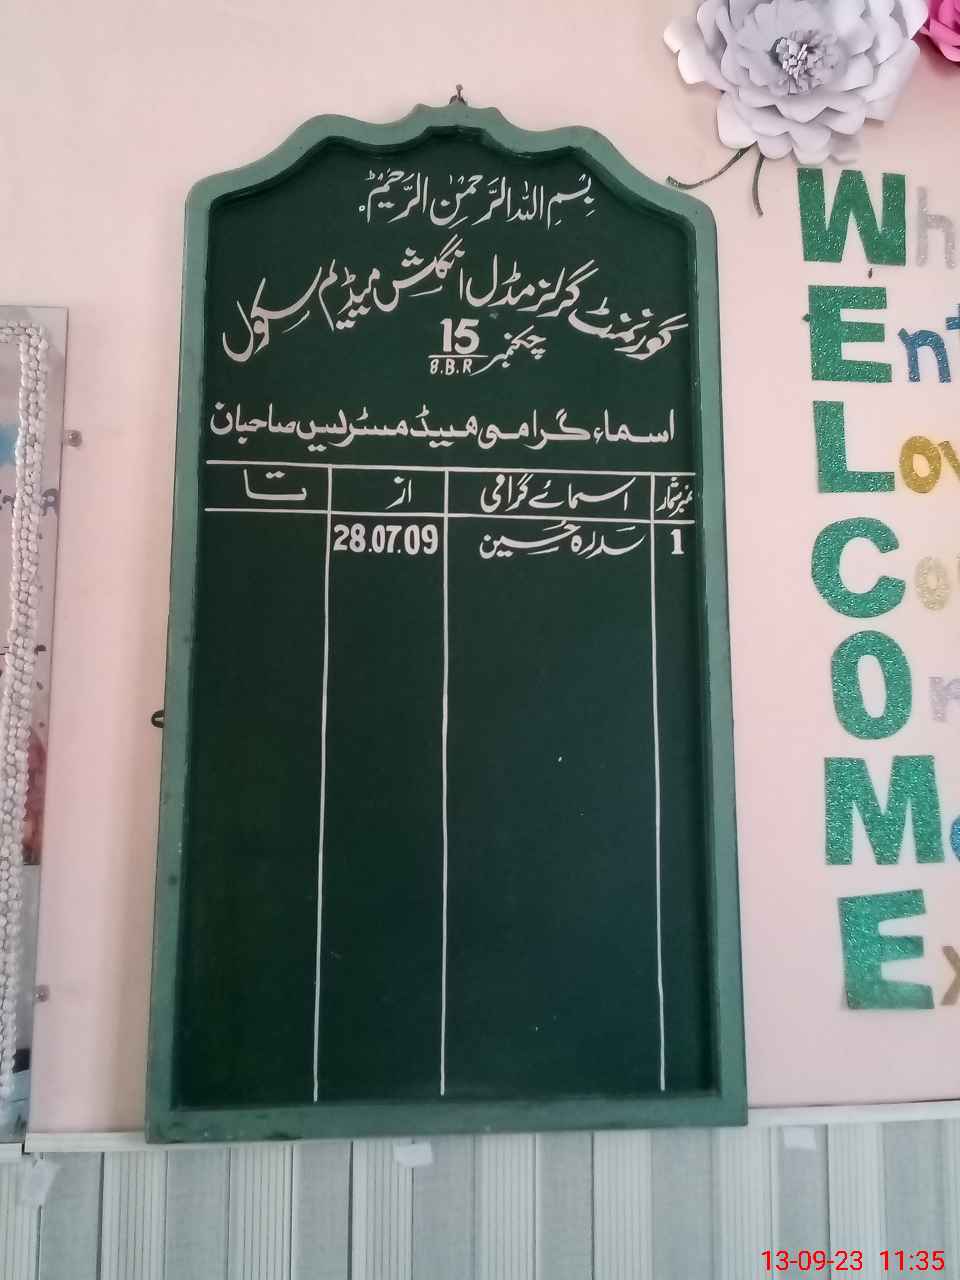 بِسْمِ اللہِ الرَّحْمٰنِ الرَّحِیْمِ
گورنمنٹ گرلز مڈل انگلش میڈیم سکول
چکنمبر 15/8.B.R
اسماء گرامی ہیڈ مسٹریس صاحبان
نمبر شمار اسمائے گرامی از تا
1 سدرہ حسین 28.07.09
WELCOME
13-09-23 11:35